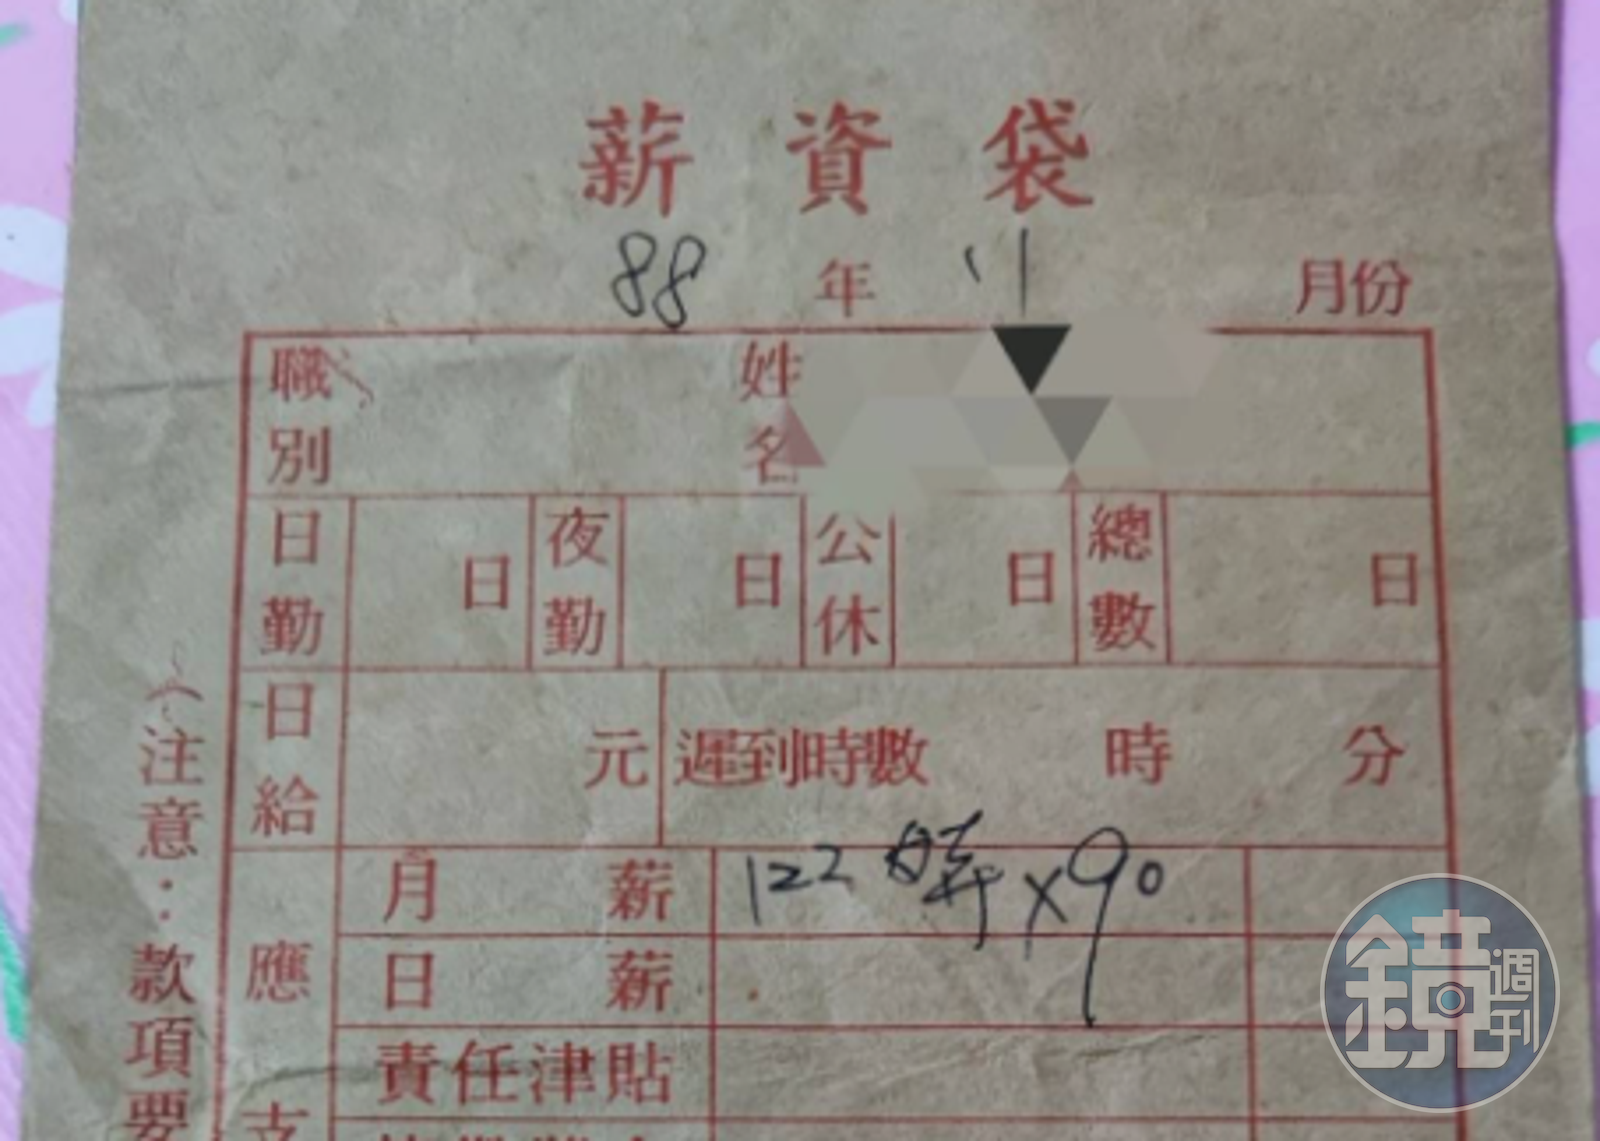 薪資袋
88年11月份
職別 姓名
日勤 日 夜勤 日 公休 日 總數 日
日給 元 遲到時數 時 分
應支
月薪 122時×90
日薪
責任津貼
(注意:款項要
鏡週刊